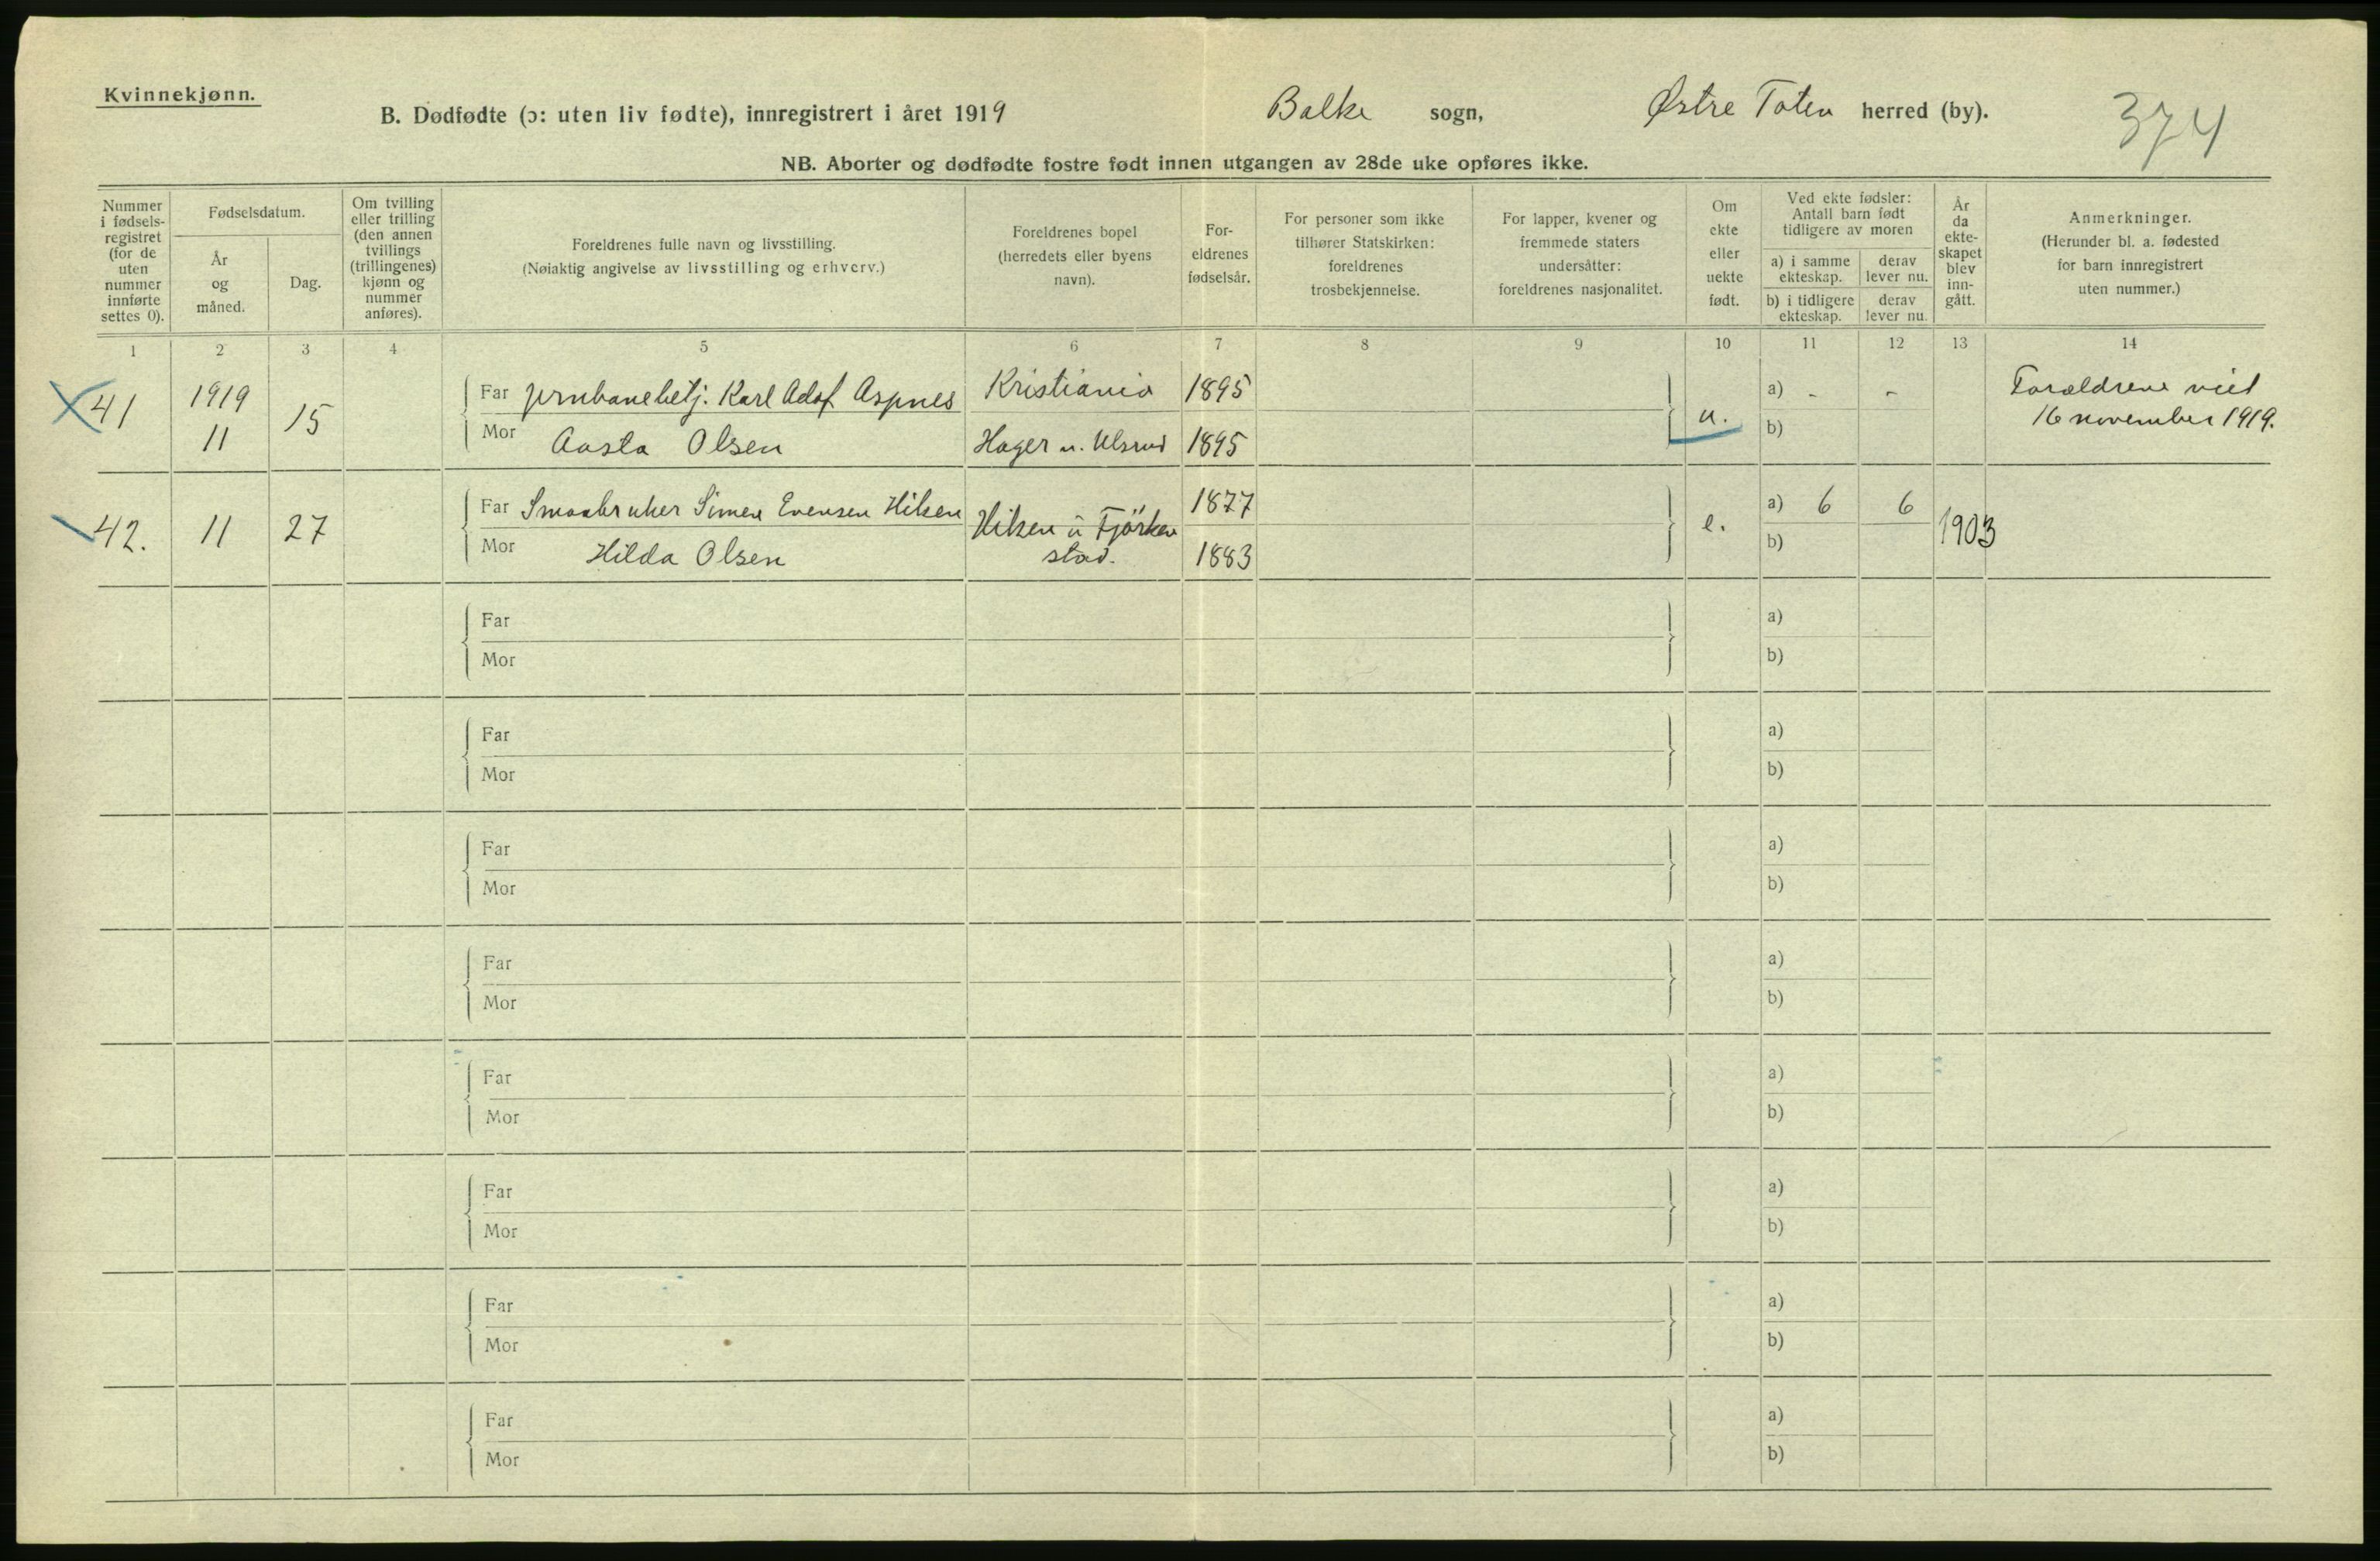 Kvinnekjønn.
B. Dødfødte (ɔ: uten liv fødte), innregistrert i året 1919 Balke sogn, Østre Toten herred (by). 374
NB. Aborter og dødfødte fostre født innen utgangen av 28de uke opføres ikke.
Nummer
i fødsels-
registret
(for de
uten
nummer
innførte
settes 0).
Fødselsdatum.
År
og
måned.
Dag.
Om tvilling
eller trilling
(den annen
tvillings
(trillingenes)
kjønn og
nummer
anføres).
Foreldrenes fulle navn og livsstilling.
(Nøiaktig angivelse av livsstilling og erhverv.)
Foreldrenes bopel
(herredets eller byens
navn).
For-
eldrenes
fødselsår.
For personer som ikke
tilhører Statskirken:
foreldrenes
trosbekjennelse.
For lapper, kvener og
fremmede staters
undersåtter:
foreldrenes nasjonalitet.
Om
ekte
eller
uekte
født.
Ved ekte fødsler:
Antall barn født
tidligere av moren
a) i samme
ekteskap.
derav
lever nu.
b) i tidligere
ekteskap.
derav
lever nu.
År
da
ekte-
skapet
blev
inn-
gått.
Anmerkninger.
(Herunder bl. a. fødested
for barn innregistrert
uten nummer.)
1 2 3 4 5 6 7 8 9 10 11 12 13 14
41 1919 11 15
Far Jernbanebetj. Karl Adof Aspnes Kristiania 1895
Mor Aasta Olsen Hager u. Ulsrud 1895
u. a) - -
b)
Forældrene viet
16 november 1919.
42. 11 27
Far Smaabruker Simen Evensen Hilsen 1877
Hilsen u Fjörken
stad.
Mor Hilda Olsen 1883
e. a) 6 6
b)
1903
Far a)
Mor b)
Far a)
Mor b)
Far a)
Mor b)
Far a)
Mor b)
Far a)
Mor b)
Far a)
Mor b)
Far a)
Mor b)
Far a)
Mor b)